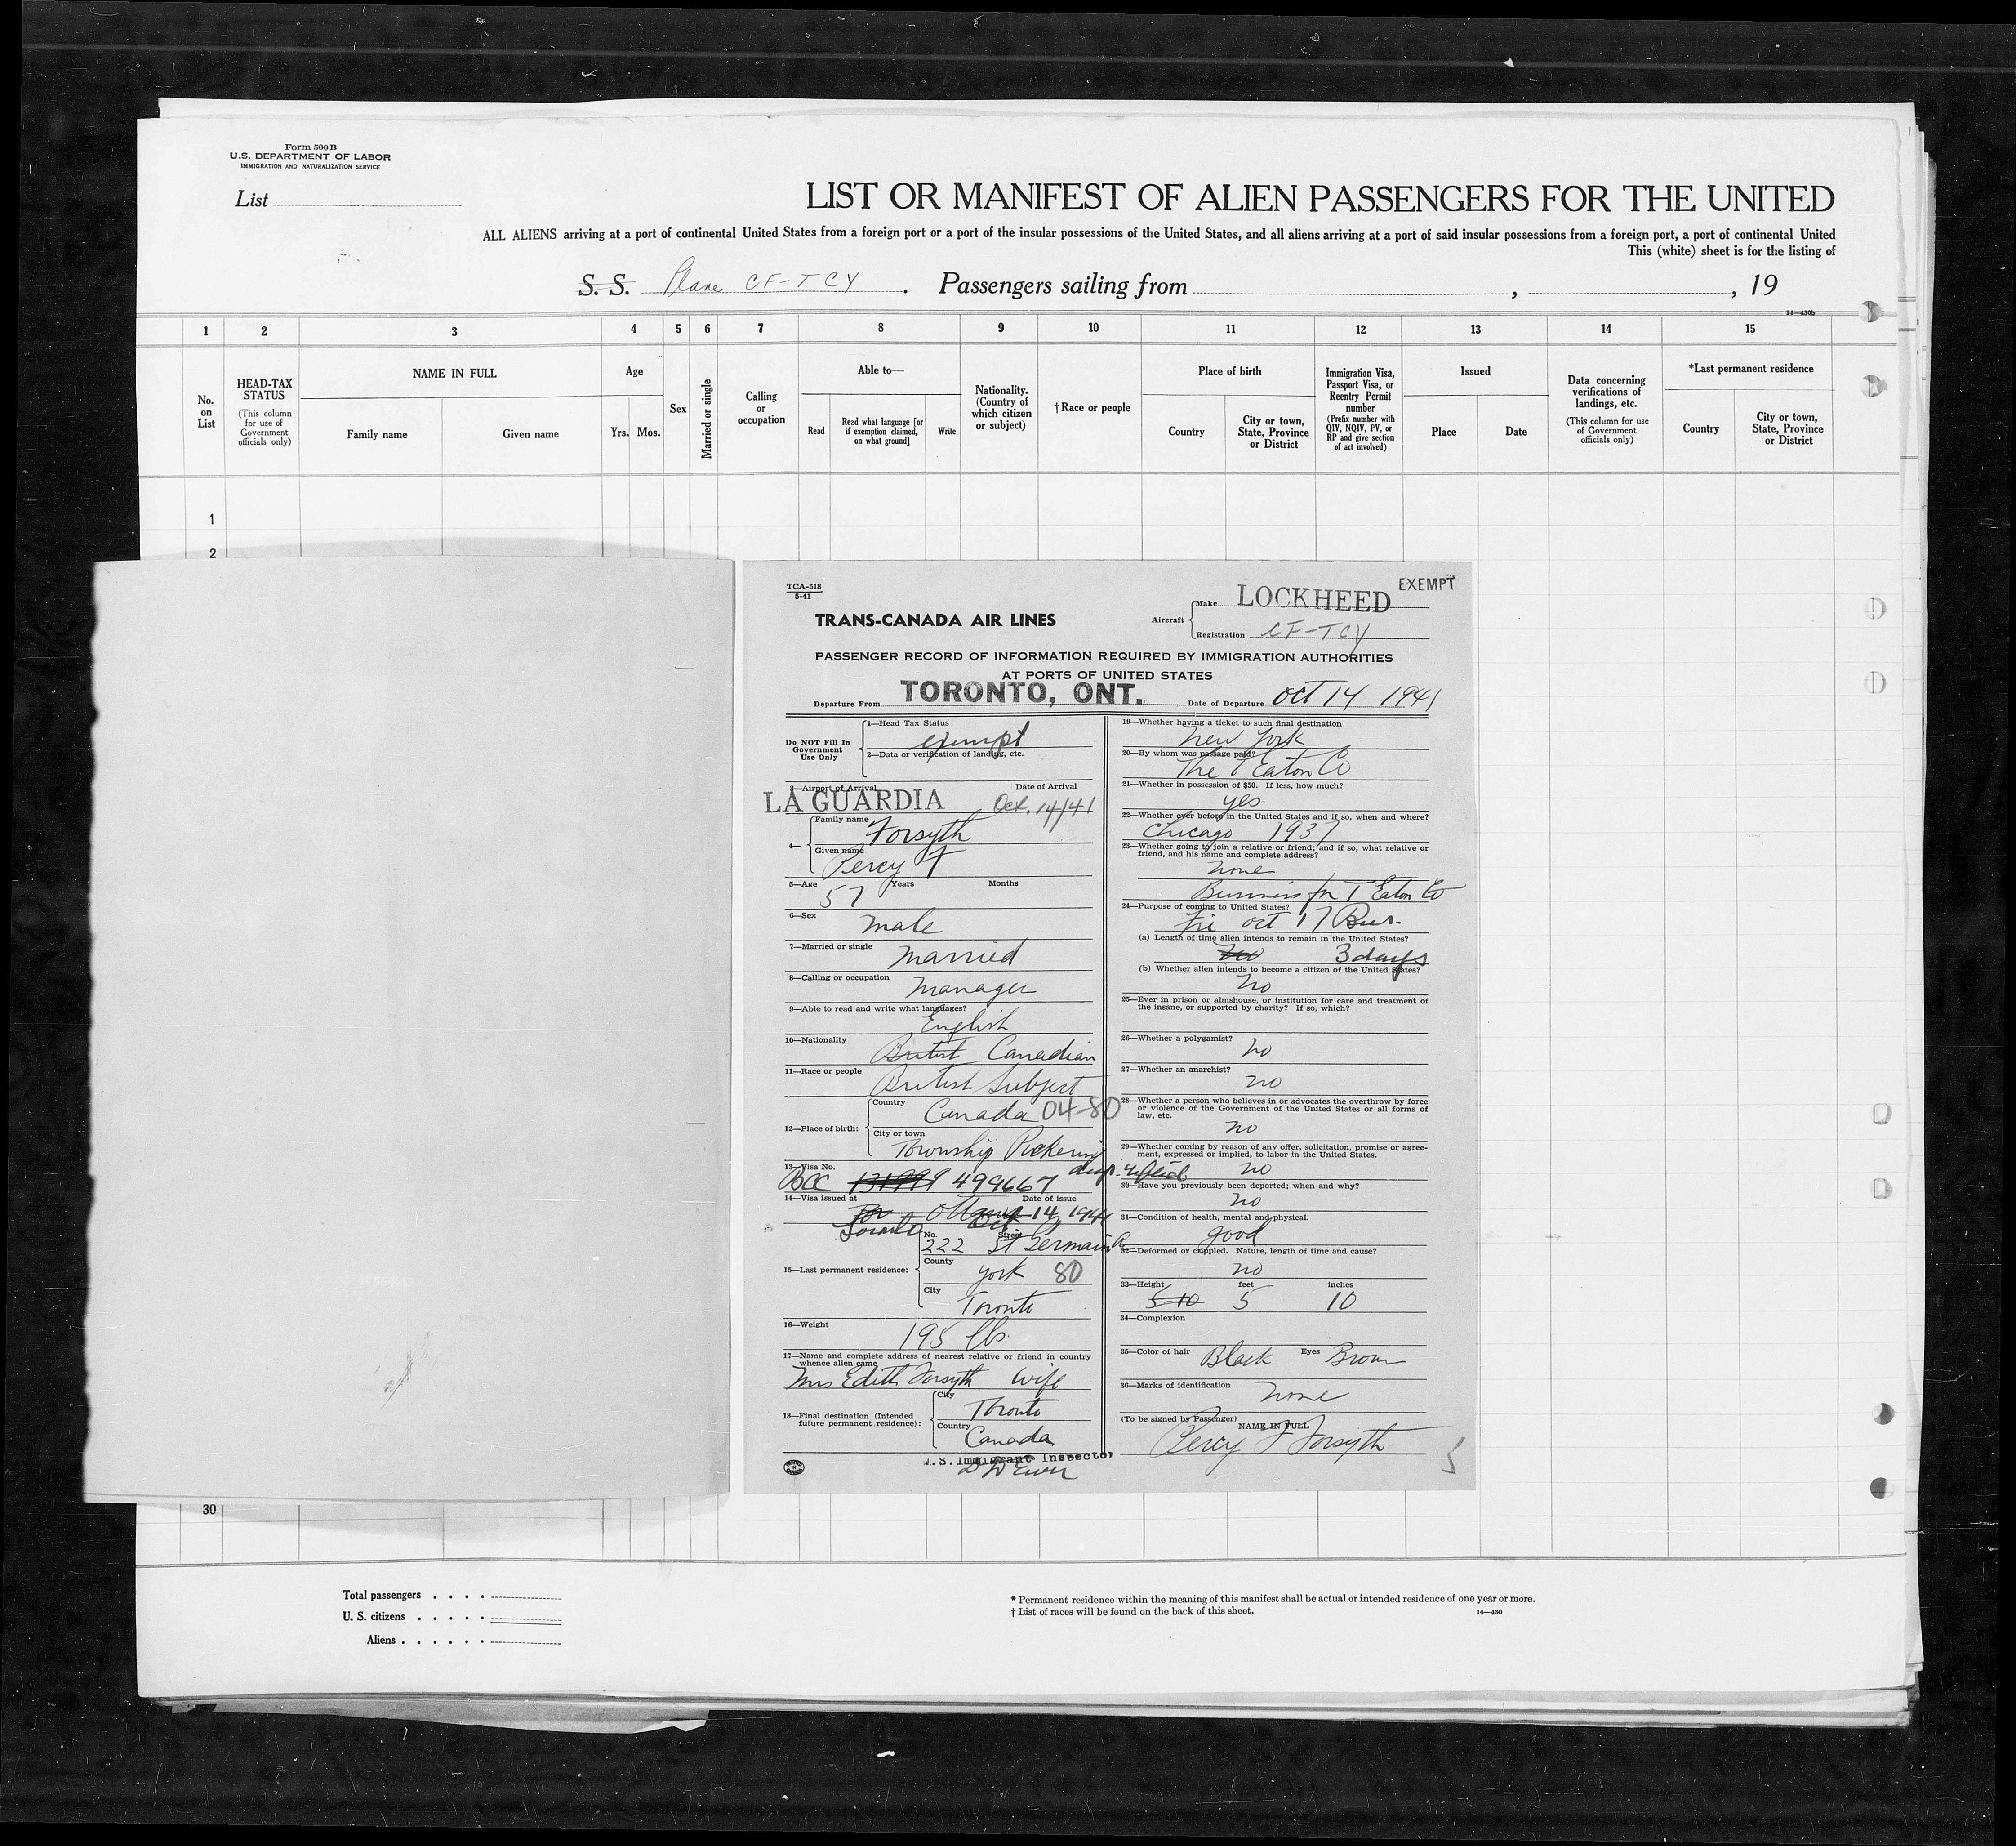 Form 500B
U.S. DEPARTMENT OF LABOR
IMMIGRATION AND NATURALIZATION SERVICE
List
LIST OR MANIFEST OF ALIEN PASSENGERS FOR THE UNITED
ALL ALIENS arriving at a port of continental United States from a foreign port or a port of the insular possessions of the United States, and all aliens arriving at a port of said insular possessions from a foreign port, a port of continental United
This (white) sheet is for the listing of
S. S. Plane CF-TCY. Passengers sailing from , , 19
14—430b
1 2 3 4 5 6 7 8 9 10 11 12 13 14 15
No. on List
HEAD-TAX STATUS
(This column for use of Government officials only)
NAME IN FULL
Family name Given name
Age
Yrs. Mos.
Sex
Married or single
Calling or occupation
Able to—
Read
Read what language [or if exemption claimed, on what ground]
Write
Nationality. (Country of which citizen or subject)
†Race or people
Place of birth
Country
City or town, State, Province or District
Immigration Visa, Passport Visa, or Reentry Permit number
(Prefix number with QIV, NQIV, PV, or RP and give section of act involved)
Issued
Place Date
Data concerning verifications of landings, etc.
(This column for use of Government officials only)
*Last permanent residence
Country
City or town, State, Province or District
1
2
TCA-518
5-41
EXEMPT
TRANS-CANADA AIR LINES
Aircraft
Make LOCKHEED
Registration CF-TCY
PASSENGER RECORD OF INFORMATION REQUIRED BY IMMIGRATION AUTHORITIES
AT PORTS OF UNITED STATES
Departure From TORONTO, ONT. Date of Departure Oct 14 1941
Do NOT Fill In Government Use Only
1—Head Tax Status
exempt
2—Data or verification of landing, etc.
3—Airport of Arrival Date of Arrival
LA GUARDIA Oct. 14/41
4—
Family name Forsyth
Given name Percy F
5—Age Years Months
57
6—Sex
male
7—Married or single
Married
8—Calling or occupation
Manager
9—Able to read and write what languages?
English
10—Nationality
British Canadian
11—Race or people
British Subject
12—Place of birth:
Country
Canada 04-80
City or town
Township Pickering
13—Visa No.
BCC 499667
14—Visa issued at Date of issue
Toronto Ottawa Oct 14 1941
15—Last permanent residence:
No. Street
222 St Germain A
County
York 80
City
Toronto
16—Weight
195 lbs.
17—Name and complete address of nearest relative or friend in country whence alien came
Mrs Edith Forsyth wife
18—Final destination (Intended future permanent residence):
City
Toronto
Country
Canada
U.S. Immigrant Inspector
19—Whether having a ticket to such final destination
New York
20—By whom was passage paid?
The T Eaton Co
21—Whether in possession of $50. If less, how much?
yes
22—Whether ever before in the United States and if so, when and where?
Chicago 1937
23—Whether going to join a relative or friend; and if so, what relative or friend, and his name and complete address?
none
Business for T Eaton Co
24—Purpose of coming to United States?
Fri Oct 17 Bus.
(a) Length of time alien intends to remain in the United States?
No 3 days
(b) Whether alien intends to become a citizen of the United States?
No
25—Ever in prison or almshouse, or institution for care and treatment of the insane, or supported by charity? If so, which?
26—Whether a polygamist?
no
27—Whether an anarchist?
no
28—Whether a person who believes in or advocates the overthrow by force or violence of the Government of the United States or all forms of law, etc.
no
29—Whether coming by reason of any offer, solicitation, promise or agreement, expressed or implied, to labor in the United States.
no
30—Have you previously been deported; when and why?
no
31—Condition of health, mental and physical.
good
32—Deformed or crippled. Nature, length of time and cause?
no
33—Height feet inches
5-10 5 10
34—Complexion
35—Color of hair Black Eyes Brown
36—Marks of identification
none
(To be signed by Passenger)
NAME IN FULL
Percy F Forsyth
30
Total passengers
U. S. citizens
Aliens
* Permanent residence within the meaning of this manifest shall be actual or intended residence of one year or more.
† List of races will be found on the back of this sheet.
14—430